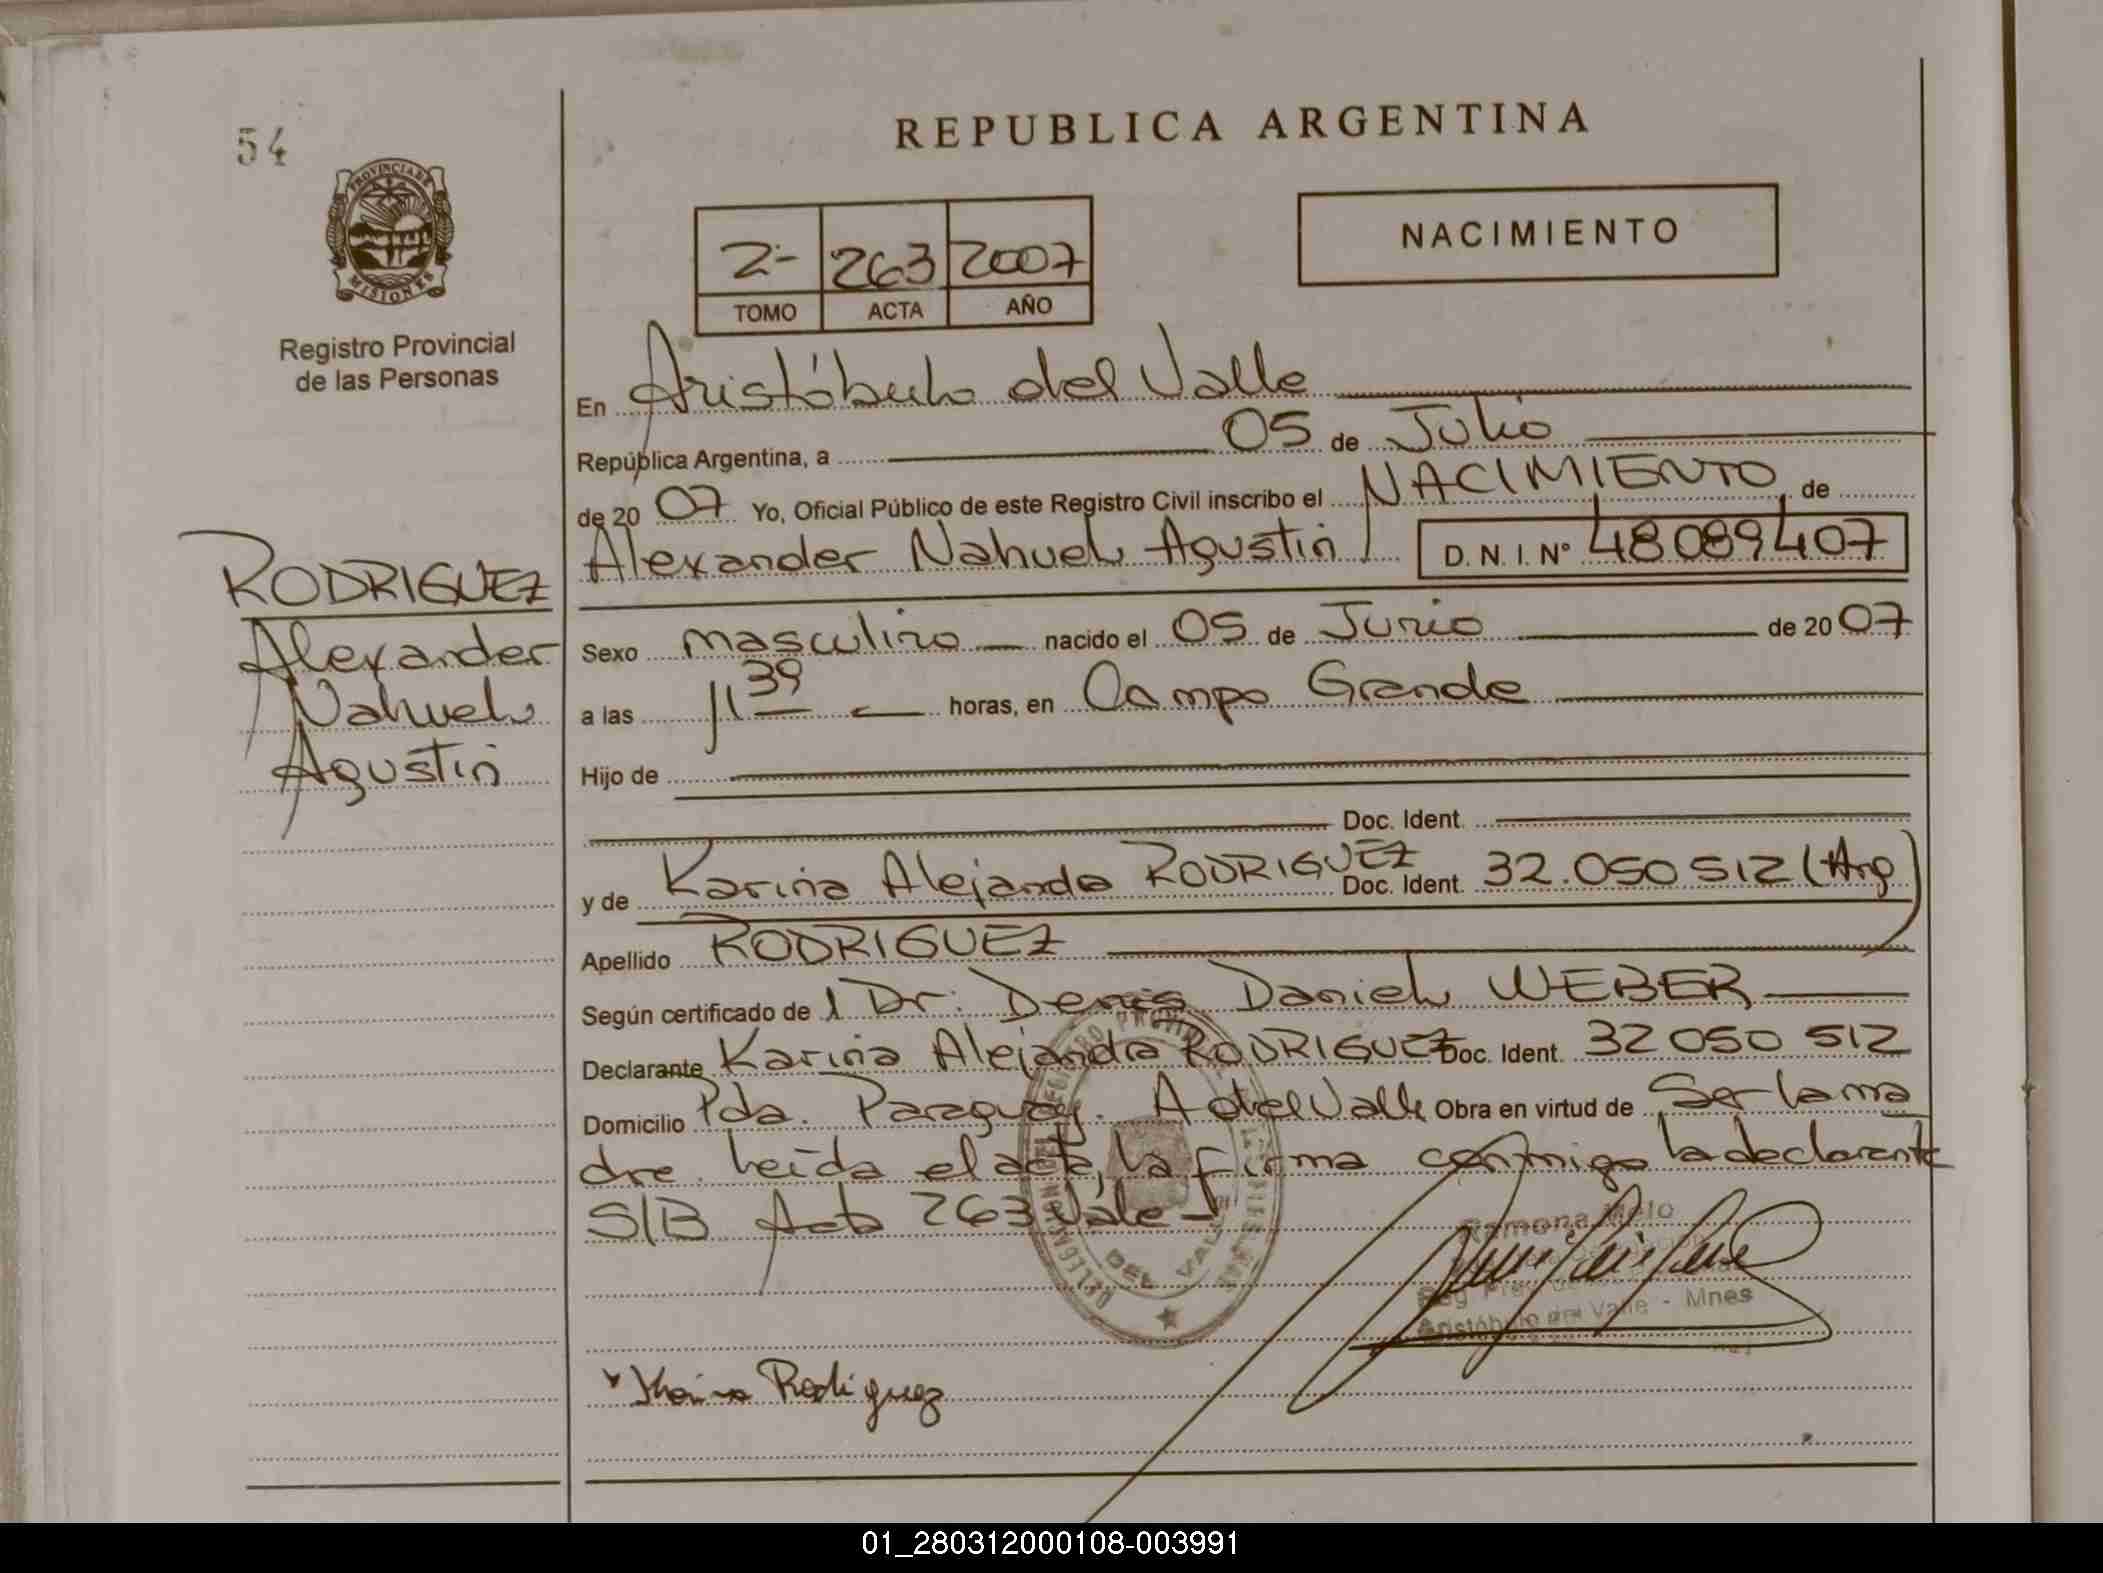 54
REPUBLICA ARGENTINA
PROVINCIA DE
MISIONES
Registro Provincial
de las Personas
2- 263 2007
TOMO ACTA AÑO
NACIMIENTO
En Aristóbulo del Valle
República Argentina, a 05 de Julio
de 20 07 Yo, Oficial Público de este Registro Civil inscribo el NACIMIENTO de
Alexander Nahuel Agustin D. N. I. Nº 48089407
RODRIGUEZ
Alexander
Nahuel
Agustin
Sexo masculino nacido el 05 de Junio de 20 07
a las 11 39 horas, en Campo Grande
Hijo de
Doc. Ident.
y de Karina Alejandra RODRIGUEZ Doc. Ident. 32.050512 (Arg)
Apellido RODRIGUEZ
Según certificado de l Dr. Denis Daniel WEBER
Declarante Karina Alejandra RODRIGUEZ Doc. Ident. 32050 512
Domicilio Pda. Paraguay. A del Valle Obra en virtud de Ser la ma
dre. Leida el acta, la firma conmigo la declarante
S/B Acta 263 Vale-
Ramona Melo
Aristóbulo del Valle - Mnes
DEL VALLE
Rodriguez
01_280312000108-003991